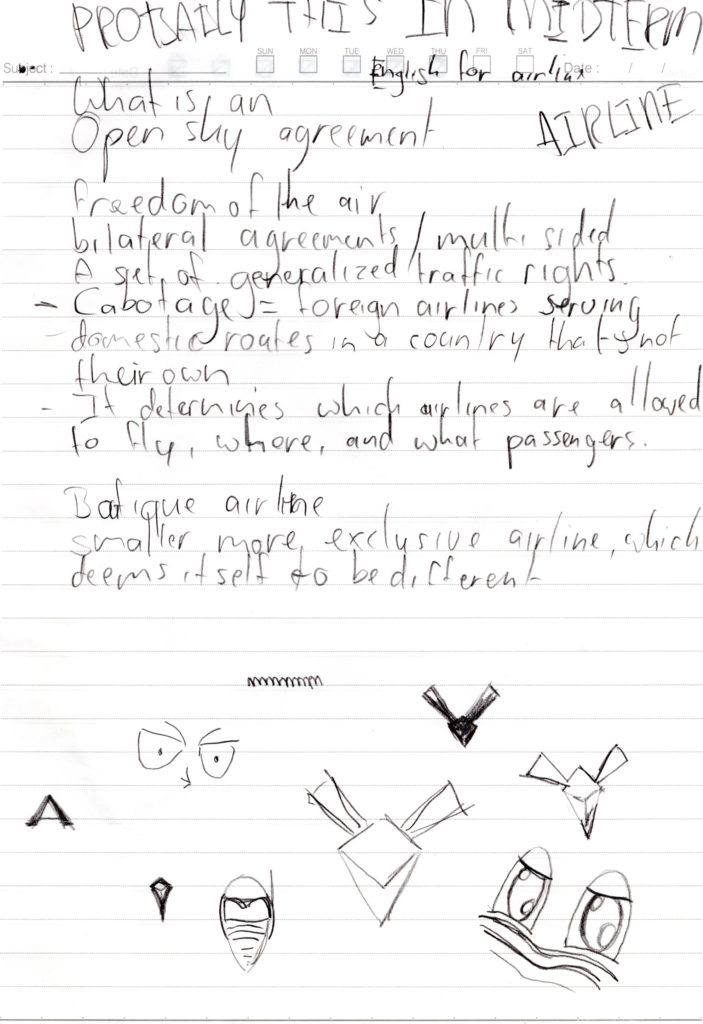 PROBALLY THIS IN MIDTERM
SUN MON TUE WED THU FRI SAT
Subject : English for airline Date : / /
What is an
Open sky agreement
AIRLINE
freedom of the air
bilateral agreements / multi sided
A set of generalized traffic rights.
- Cabotage = foreign airlines serving
- domestic routes in a country that's not
their own
- It determinies which airlines are allowed
to fly, where, and what passengers.
airline
smaller more exclusive airline, which
deems itself to be different
A